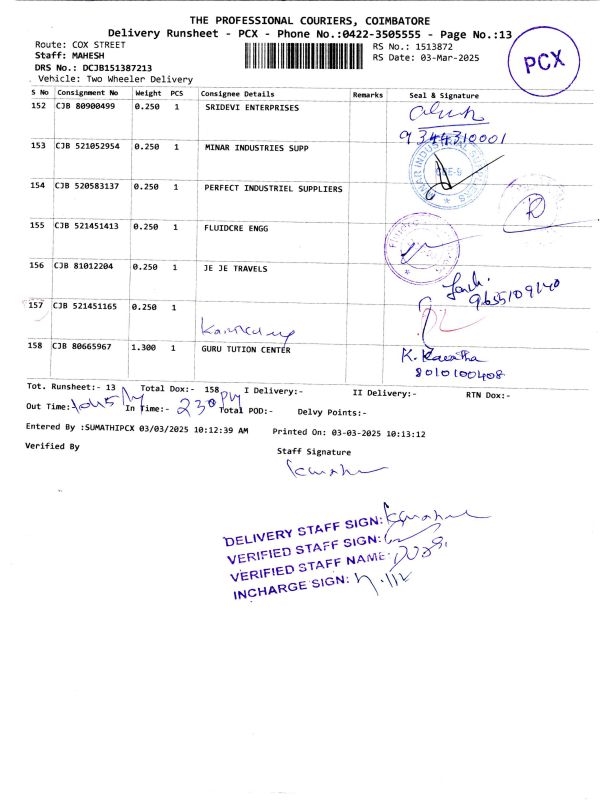 THE PROFESSIONAL COURIERS, COIMBATORE
Delivery Runsheet - PCX - Phone No.:0422-3505555 - Page No.:13
Route: COX STREET
RS No.: 1513872
Staff: MAHESH
RS Date: 03-Mar-2025
PCX
DRS No.: DCJB151387213
Vehicle: Two Wheeler Delivery
S No Consignment No Weight PCS Consignee Details Remarks Seal & Signature
152 CJB 80900499 0.250 1 SRIDEVI ENTERPRISES
9344310001
153 CJB 521052954 0.250 1 MINAR INDUSTRIES SUPP
154 CJB 520583137 0.250 1 PERFECT INDUSTRIEL SUPPLIERS
155 CJB 521451413 0.250 1 FLUIDCRE ENGG
156 CJB 81012204 0.250 1 JE JE TRAVELS
9655109140
157 CJB 521451165 0.250 1
158 CJB 80665967 1.300 1 GURU TUTION CENTER
K. Kavitha
8010100408
Tot. Runsheet:- 13 Total Dox:- 158 I Delivery:- II Delivery:- RTN Dox:-
Out Time: In Time:- 230 PM Total POD:- Delvy Points:-
Entered By :SUMATHIPCX 03/03/2025 10:12:39 AM Printed On: 03-03-2025 10:13:12
Verified By
Staff Signature
DELIVERY STAFF SIGN:
VERIFIED STAFF SIGN:
VERIFIED STAFF NAME:
INCHARGE SIGN: